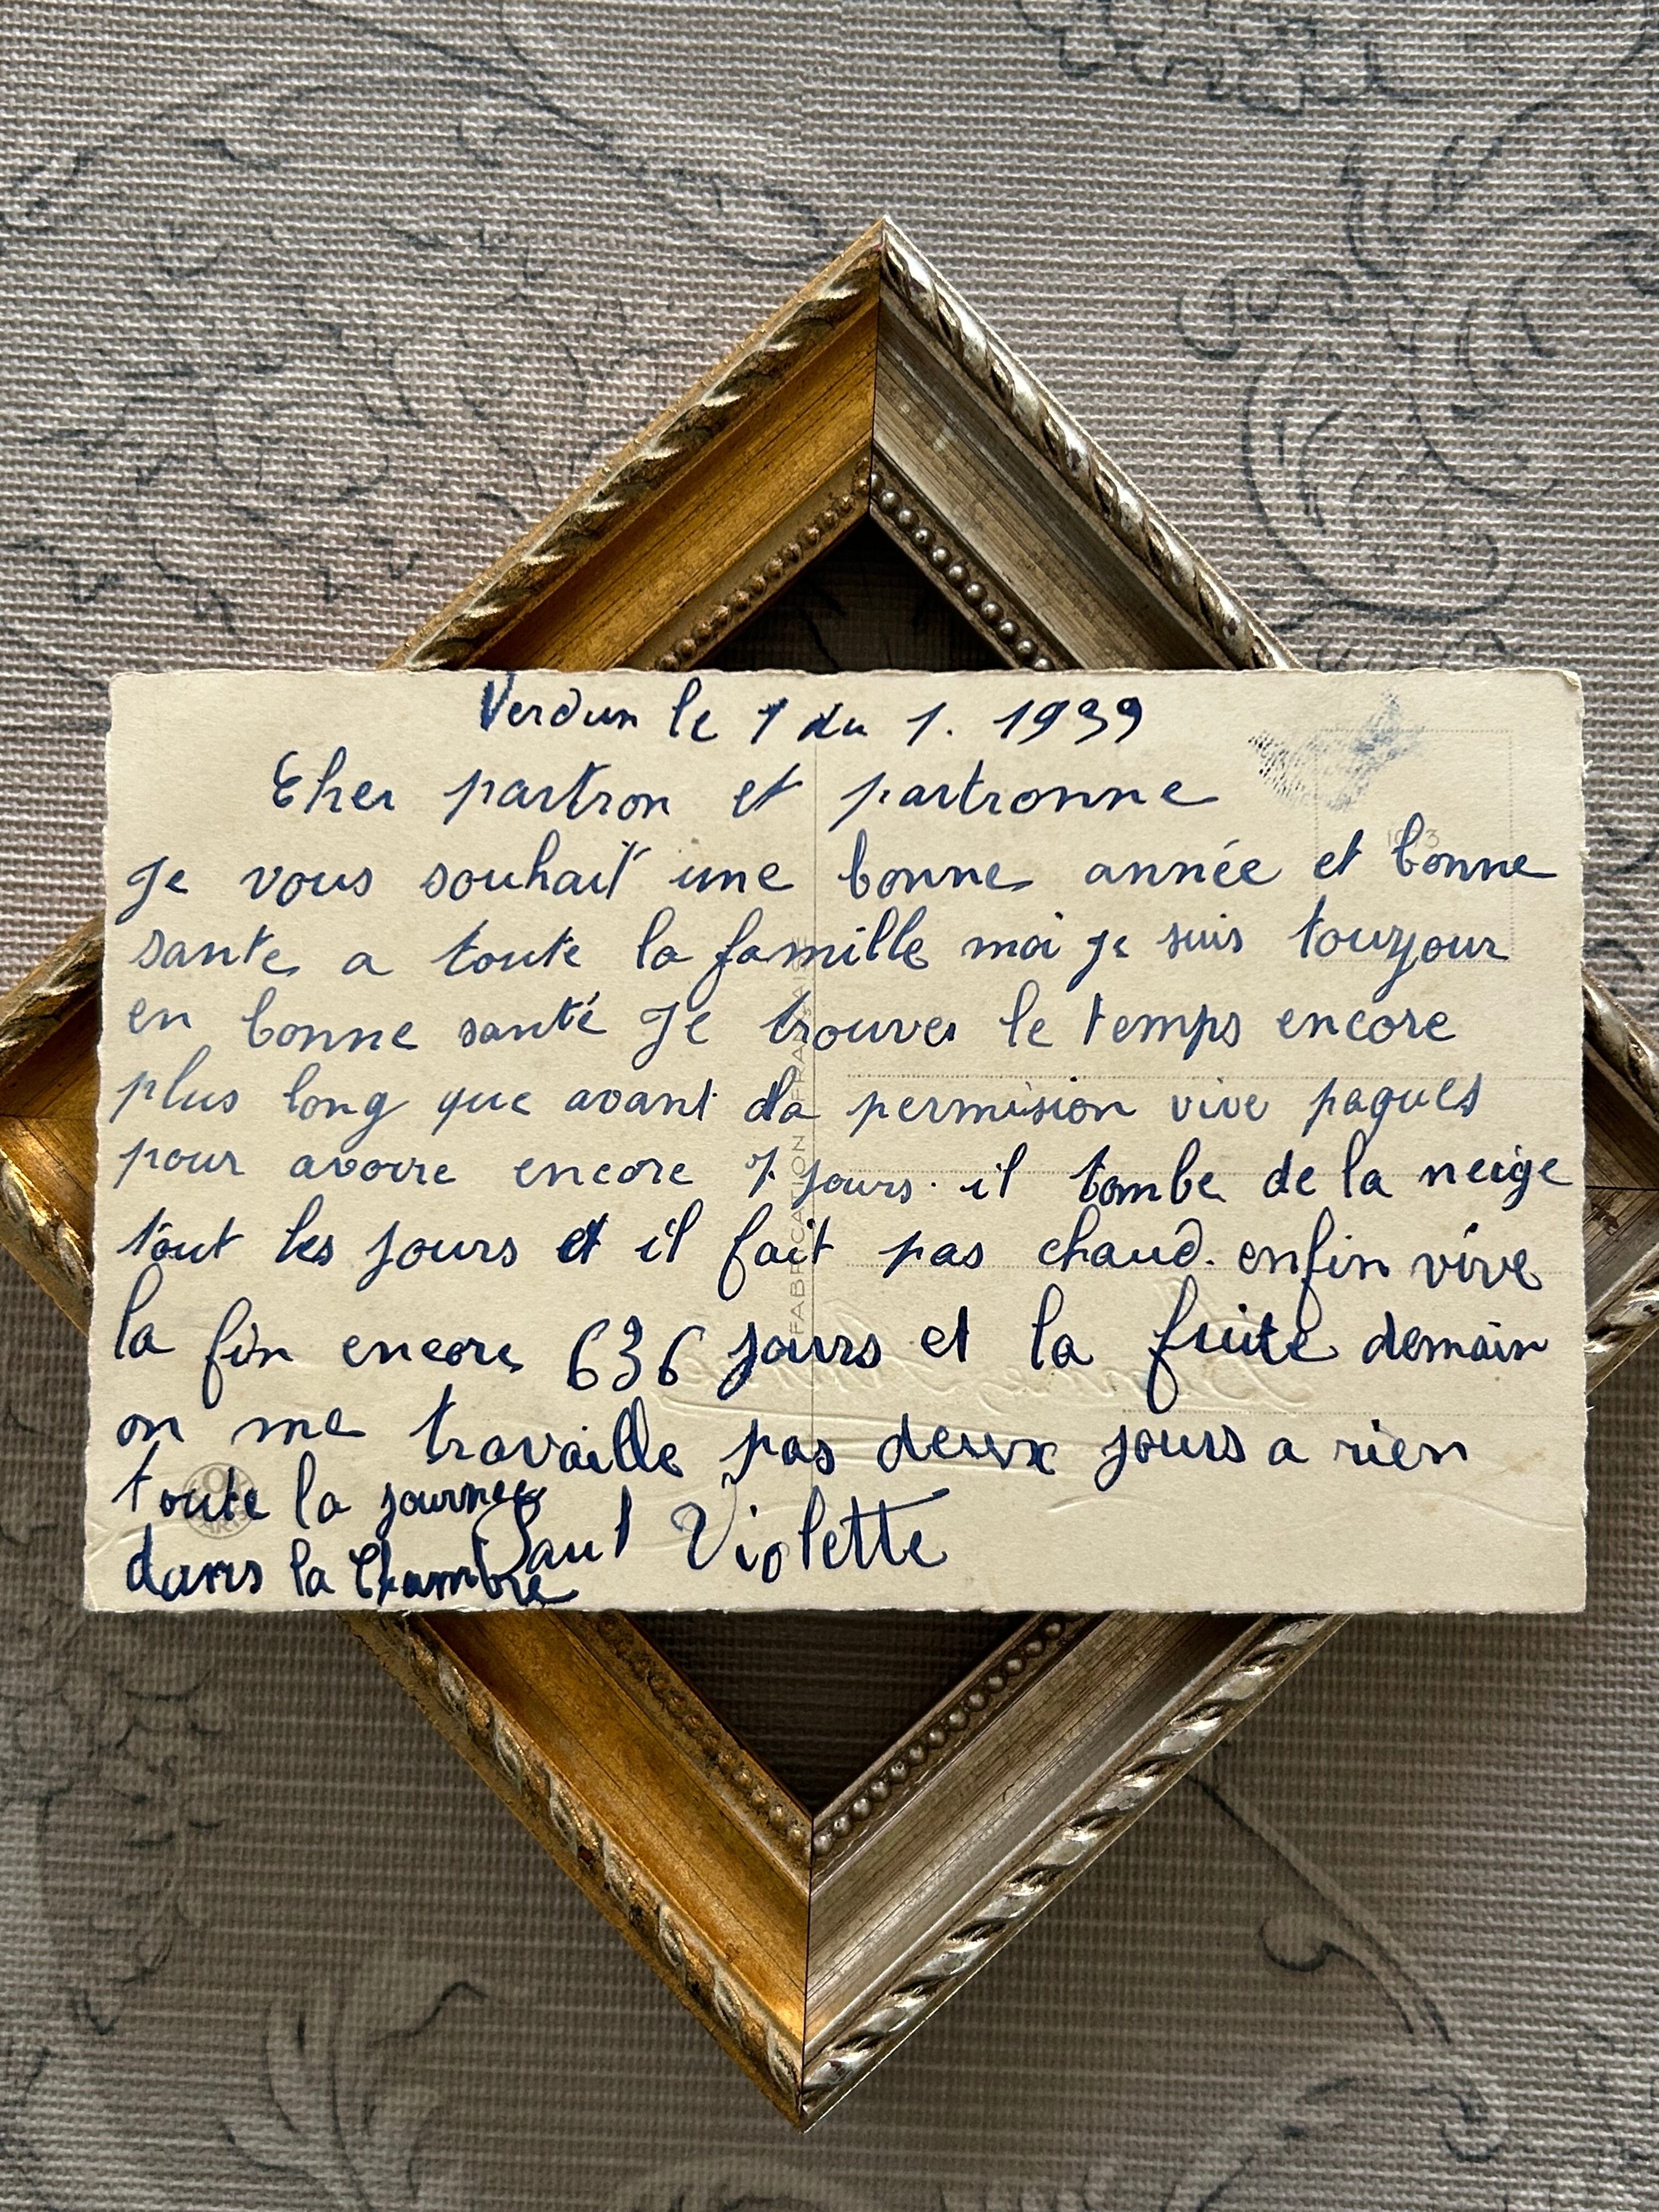 Verdun le 1 du 1. 1939
Cher partron et partronne
Je vous souhait une bonne année et bonne
sante a toute la famille moi je suis toujour
en bonne santé Je trouve le temps encore
plus long que avant la permision vive paques
pour avoire encore 7 jours. il tombe de la neige
tout les jours et il fait pas chaud. enfin vive
la fin encore 636 jours et la fuite demain
on me travaille pas deux jours a rien
toute la journee
dans la Chambre
Paul Violette
FABRICATION FRANÇAISE